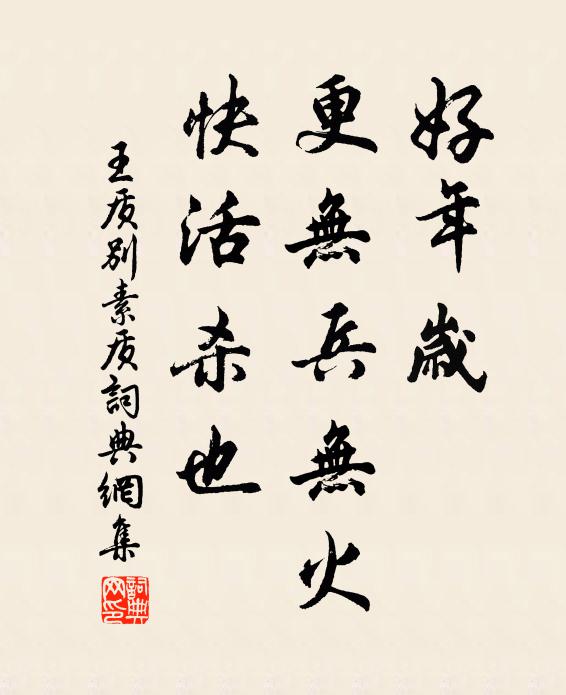 好年歲
更無兵無火
快活杀也
王质别素质詞典網集
詞典网印